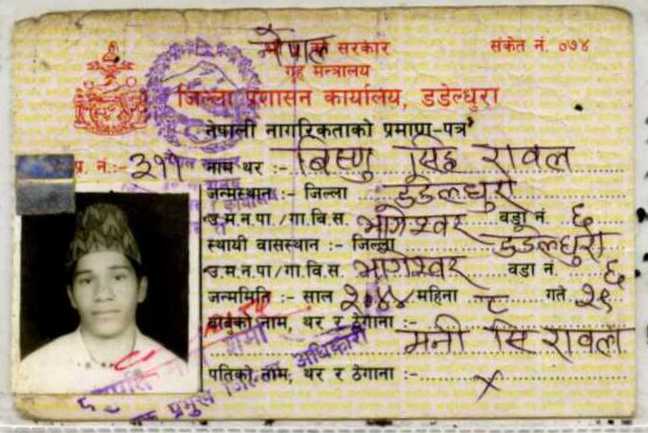 नेपाल सरकार
संकेत नं. ०७४
गृह मन्त्रालय
जिल्ला प्रशासन कार्यालय, डडेल्धुरा
नेपाली नागरिकताको प्रमाण-पत्र
प्र. नं.:- ३११ नाम थर :- बिष्णु सिंह रावल
जन्मस्थान :- जिल्ला डडेलधुरा
उ.म.न.पा./गा.वि.स. भागेश्वर वडा नं. ६
स्थायी वासस्थान :- जिल्ला डडेलधुरा
उ.म.न.पा/गा.वि.स. भागेश्वर वडा नं. ६
जन्ममिति :- साल २०४४ महिना ८ गते २९
बाबुको नाम, थर र ठेगाना :- मनी सिं रावल
पतिको नाम, थर र ठेगाना :- x
प्रमुख जिल्ला अधिकारी